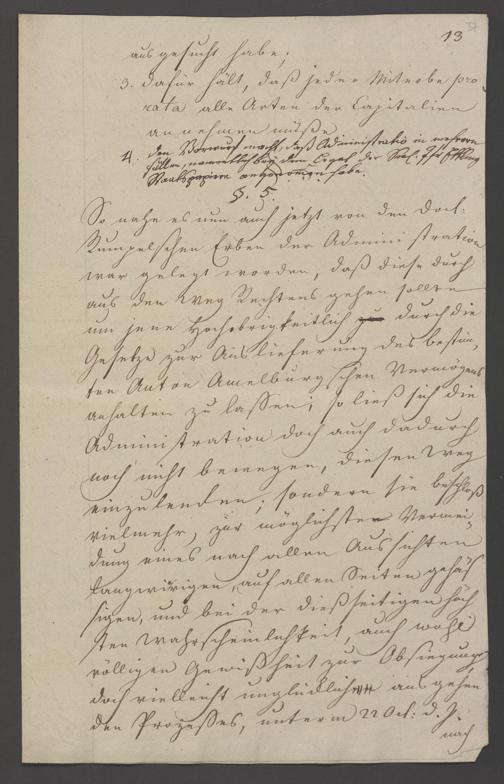 13
ausgesucht habe;
3. dafür hält, daß jeder Miterbe pro
rata alle Arten der Capitalien
annehmen müße
4. den Vorwurf macht, daß Administratio in mehrern
Fällen, namentlich bey dem Legat der
Staatspapiere angenommen habe.
§. 5.
So nahe es nun auch jetzt von den Doct:
Rumpelschen Erben der Administration
war gelegt worden, daß diese durch
aus den Weg Rechtens gehen sollte
um jene Hochobrigkeitlich durch die
Gesetze zur Auslieferung des bestim,
ten Anton Amelburgschen Vermögens
anhalten zu lassen; so ließ sich die
Administration doch auch dadurch
noch nicht bewegen, diesen Weg
einzulenken; sondern sie beschloß
vielmehr, zur möglichsten Vermei,
dung eines nach allen Aussichten
langwierigen, auf allen Seiten gehäs
sigen, und bei der dießseitigen höch
sten Wahrscheinlichkeit, auch wohl
völligen Gewißheit zur Obsiegung
doch vielleicht unglücklich ausgehen
den Prozesses, unterm 22 Oct: d. J.
nach